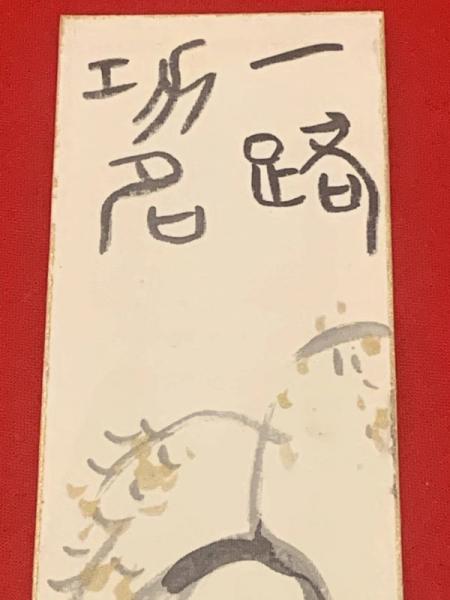 一路
功名